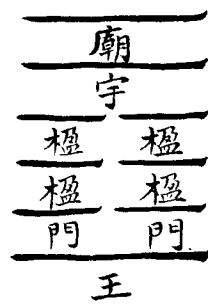 廟
宇
楹 楹
楹 楹
門 門
王